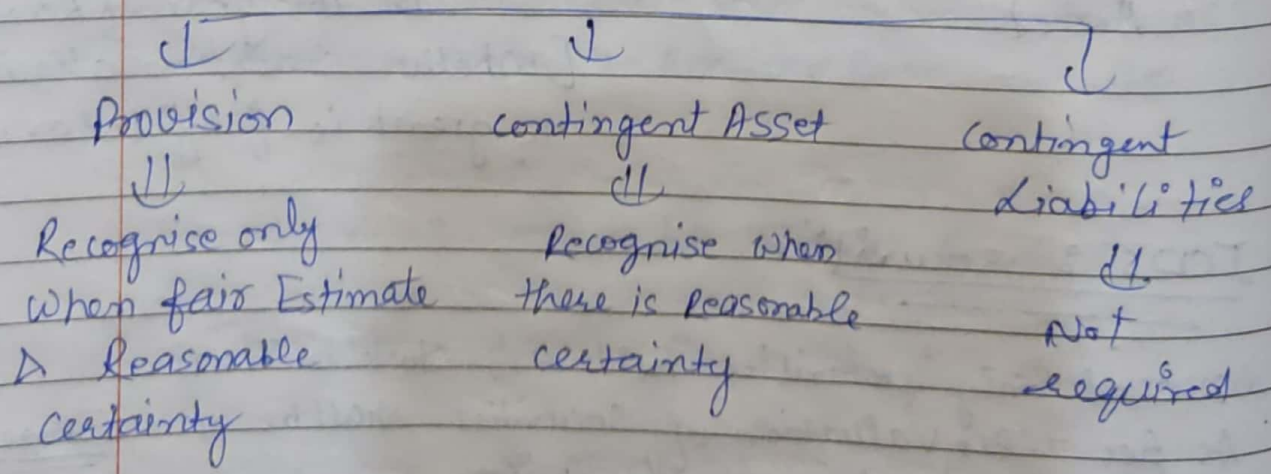 Provision
↓↓
Recognise only
When fair Estimate
& Reasonable
certainty
contingent Asset
↓↓
Recognise when
there is Reasonable
certainty
Contingent
Liabilities
↓↓
Not
required